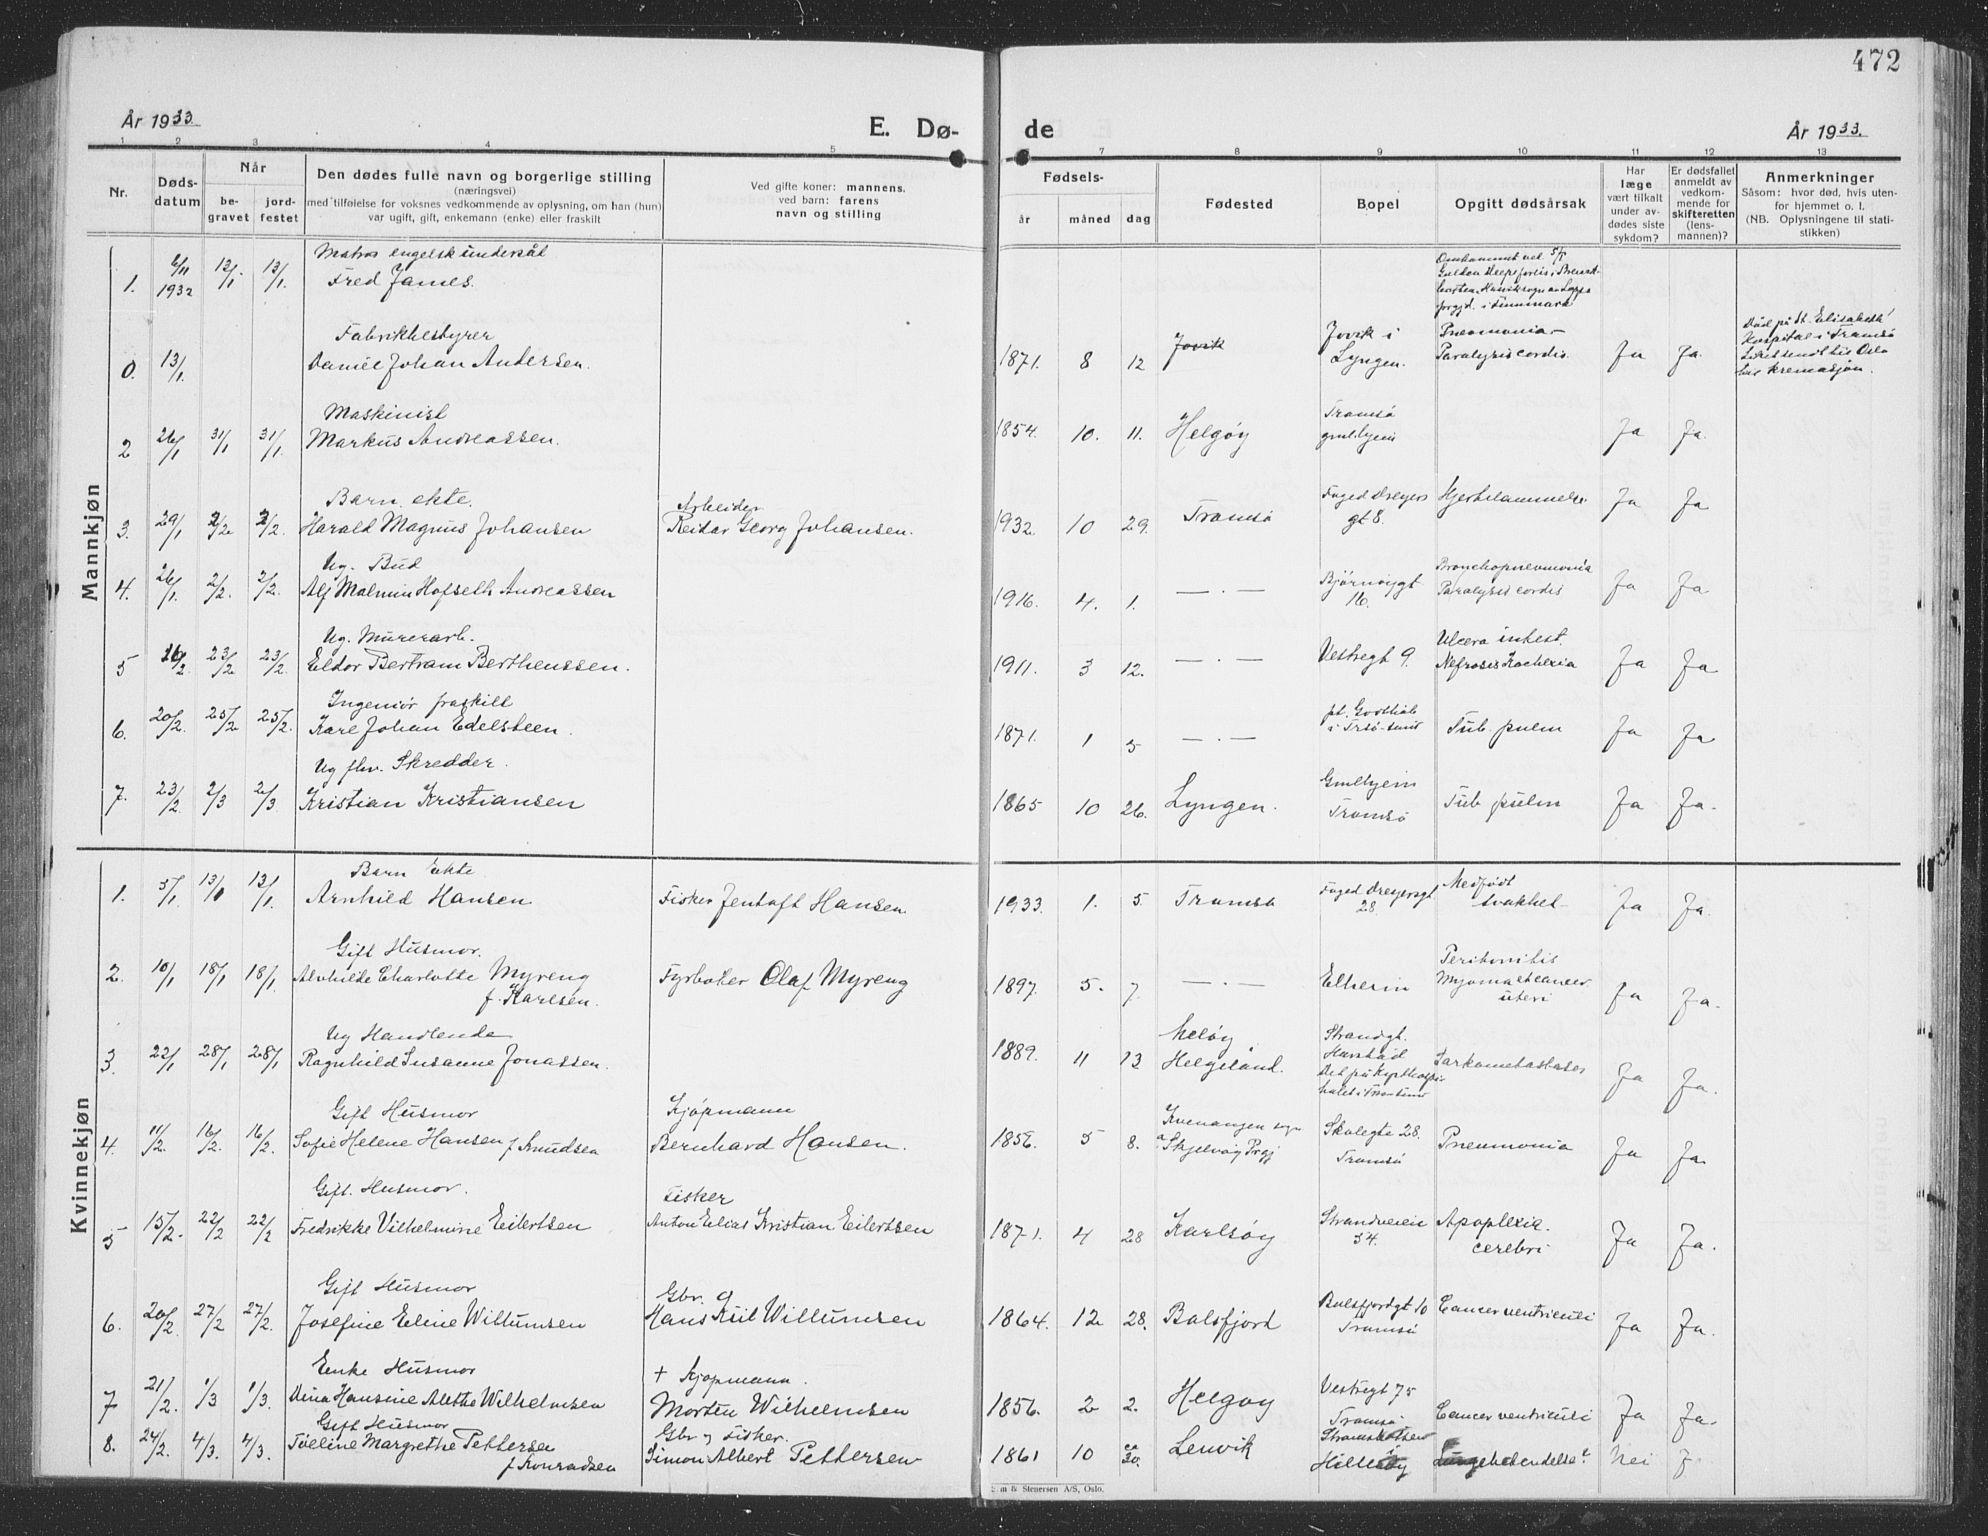 472
År 1933.
E. Dø-
de
År 1933.
1 2 3 4 5 7 8 9 10 11 12 13
Nr.
Døds-
datum
Når
be-
gravet
jord-
festet
Den dødes fulle navn og borgerlige stilling
(næringsvei)
med tilføielse for voksnes vedkommende av oplysning, om han (hun)
var ugift, gift, enkemann (enke) eller fraskilt
Ved gifte koner: mannens,
ved barn: farens
navn og stilling
Fødsels-
år måned dag
Fødested
Bopel
Opgitt dødsårsak
Har
læge
vært tilkalt
under av-
dødes siste
sykdom?
Er dødsfallet
anmeldt av
vedkom-
mende for
skifteretten
(lens-
mannen)?
Anmerkninger
Såsom: hvor død, hvis uten-
for hjemmet o. l.
(NB. Oplysningene til stati-
stikken)
Mannkjøn
Matros engelsk undersåt
1. 6/11 1932 13/1 13/1. Fred James.
Omkommet ved
i Finnmark
Fabrikkbestyrer
0. 13/1. Daniel Johan Andersen.
1871. 8 12 Jovik
Jovik i
Lyngen.
Pneumonia -
Paralysis cordis.
Ja Ja.
Død på St. Elisabeth
Hospital i Tromsø
Liket sendt til Oslo
til kremasjon.
Maskinist
2 26/1 31/1 31/1. Markus Andreassen.
1854. 10. 11. Helgøy
Tromsø
gmlhjem
Ja Ja.
Barn ekte.
3. 29/1 2/2 2/2. Harald Magnus Johansen
Arbeider
Reidar Georg Johansen.
1932 10 29. Tromsø
Foged Dreyers
gt 8.
Hjertelammelse
Ja Ja
Ug. Bud
4. 26/1. 2/2. 2/2. Alf Malmin Hofseth Andreassen
1916. 4. 1. — . —
Bjørnøygt
16.
Bronchopneumonia
Paralysis cordis
Ja Ja
Ug. Murerarb.
5 16/2. 23/2 23/2. Eldor Bertram Berthenssen.
1911. 3 12. — . —
Vestregt 9.
Ulcera intest.
Nefrosis Kachexia
Ja Ja
Ingeniør fraskilt
6. 20/2. 25/2 25/2. Karl Johan Edelsteen.
1871. 1 5 — . —
pt. Godthåb
i Trsø-sund
Tub pulm
Ja Ja
Ug fhv. Skredder.
7. 23/2 2/3 2/3. Kristian Kristiansen
1865 10 26. Lyngen.
Gmlhjem
Tromsø
Tub pulm
Ja Ja.
Kvinnekjøn
Barn Ekte
1. 5/1. 13/1 13/1. Arnhild Hansen
Fisker Jentoft Hansen.
1933. 1. 5. Tromsø
Foged Dreyersgt
28.
Medfødt
svakhet
Ja Ja.
Gift Husmor.
2. 10/1 18/1 18/1. Alvhilde Charlotte Myreng
f. Karlsen.
Fyrbøter Olaf Myreng
1897. 5. 7. — . —
Elheim
Peritonitis
Myoma et cancer
uteri
Ja Ja.
Ug Handlende
3. 22/1 28/1 28/1 Ragnhild Susanne Jonassen.
1889. 11 13
Meløy
Helgeland.
Strandgt.
Harstad
Sarkometastaser
Ja Ja.
Gift Husmor
4. 11/2. 16/2. 16/2. Sofie Helene Hansen f Knudsen
Kjøpmann
Bernhard Hansen.
1856. 5 8.
Kvenangen sogn
Skjervøy Prgj
Skolegte 28.
Tromsø
Pneumonia
Ja Ja.
Gift. Husmor.
5 15/2. 22/2 22/2 Fredrikke Vilhelmine Eilertsen
Fisker
Anton Elias Kristian Eilertsen
1871. 4 28 Karlsøy
Strandveien
34.
Apoplexia.
cerebri
Ja Ja.
Gift Husmor
6. 20/2. 27/2 27/2. Josefine Eline Willumsen
Gbr.
Hans Kiil Willumsen
1864. 12 28. Balsfjord
Balsfjordgt 10
Tromsø
Cancer ventriculi
Ja Ja.
Enke Husmor
7 21/2. 1/3 1/3. Dina Hansine Alethe Wilhelmsen
+ Kjøpmann.
Morten Wilhelmsen
1856. 2 2. Helgøy
Vestregt 75
Tromsø
Cancer ventriculi
Ja Ja.
Gift Husmor
8. 24/2. 4/3. 4/3. Toeline Margrethe Pettersen
f Konradsen
Gbr og Fisker.
Simon Albert Pettersen
1861 10 ca 30. Lenvik
Hillesøy
Lungebetendelse?
Nei J.
& Stenersen A/S, Oslo.